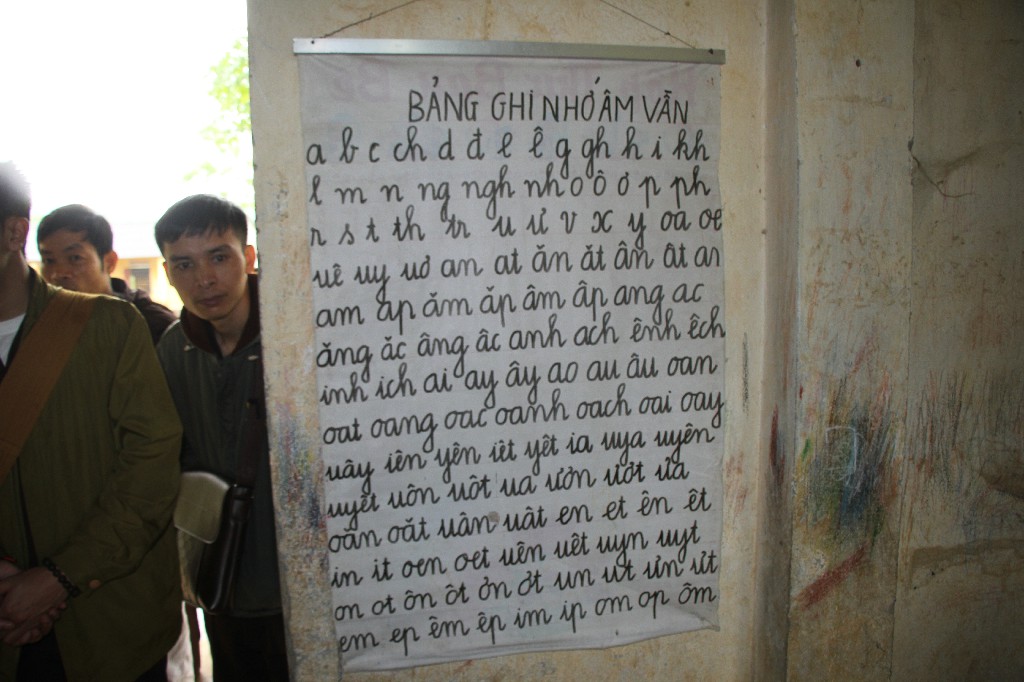 BẢNG GHI NHỚ ÂM VẪN
a b c ch d đ e ê g gh h i kh
l m n ng ngh nh o ô ơ p ph
r s t th tr u ư v x y oa oe
uê uy uơ an at ăn ăt ân ât an
am ap ăm ăp âm âp ang ac
ăng ăc âng âc anh ach ênh êch
inh ich ai ay ây ao au âu oan
oat oang oac oanh oach oai oay
uây iên yên iêt yêt ia uya uyên
uyêt uôn uôt ua ươn ươt ưa
oăn oăt uân uât en et ên êt
in it oen oet uên uêt uyn uyt
on ot ôn ôt ơn ơt un ut ưn ưt
em ep êm êp im ip om op ôm